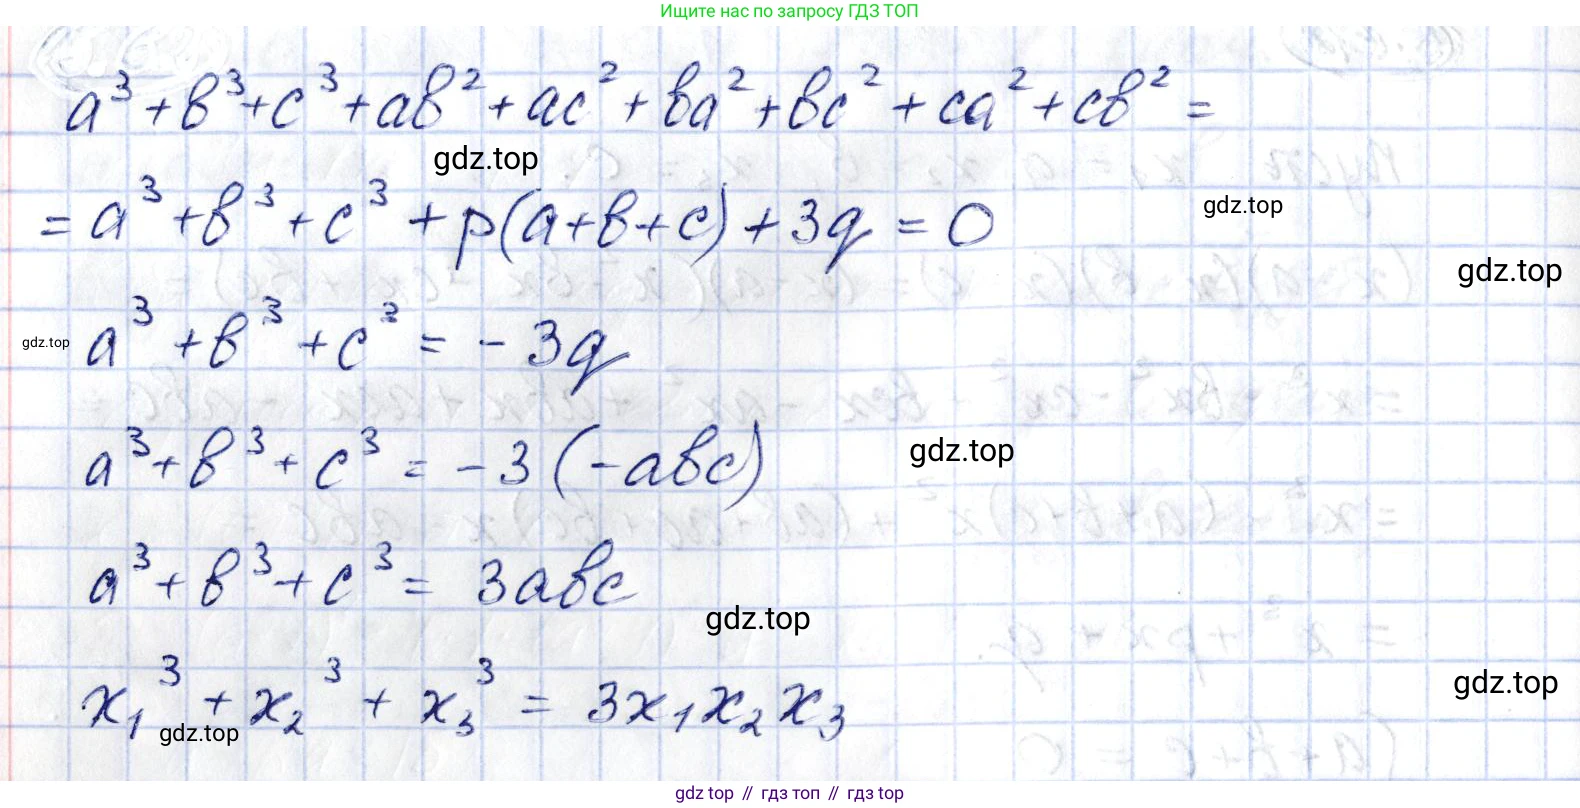 Ищите нас по запросу ГДЗ ТОП
a³+в³+c³+aв²+ac²+вa²+вc²+ca²+cв²=
gdz.top
=a³+в³+c³+p(a+в+c)+3q=0
gdz.top
gdz.top
a³+в³+c³=-3q
gdz.top
a³+в³+c³=-3(-aвc)
gdz.top
a³+в³+c³=3aвc
gdz.top
x₁³+x₂³+x₃³=3x₁x₂x₃
gdz.top
gdz.top
gdz top // гдз топ // gdz top